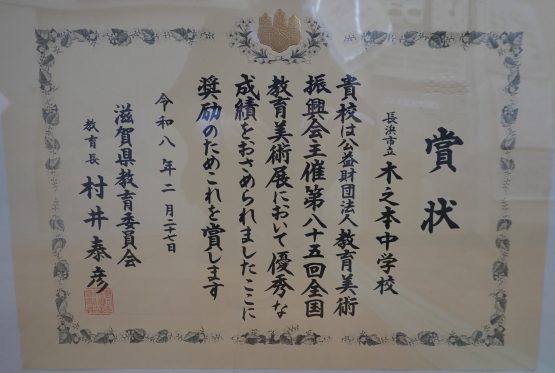 賞状
長浜市立 木之本中学校
貴校は公益財団法人教育美術
振興会主催第八十五回全国
教育美術展において優秀な
成績をおさめられましたここに
奨励のためこれを賞します
令和八年二月二十七日
滋賀県教育委員会
教育長 村井泰彦